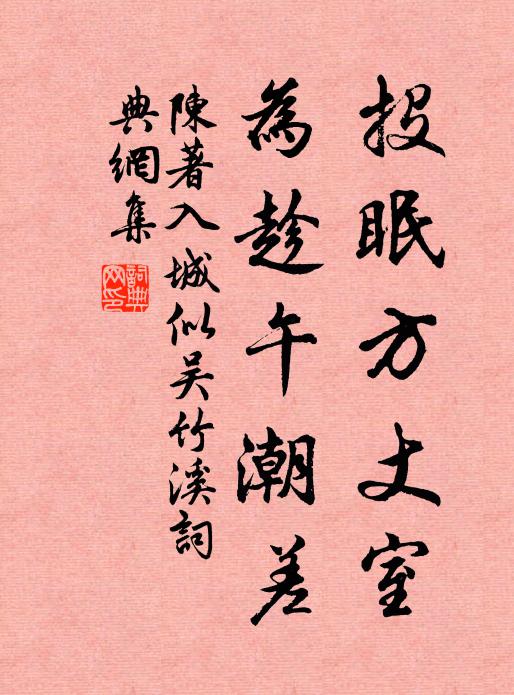 投眠方丈室
為趁午潮差
陳著入城似吳竹溪詞
典網集
詞典網印